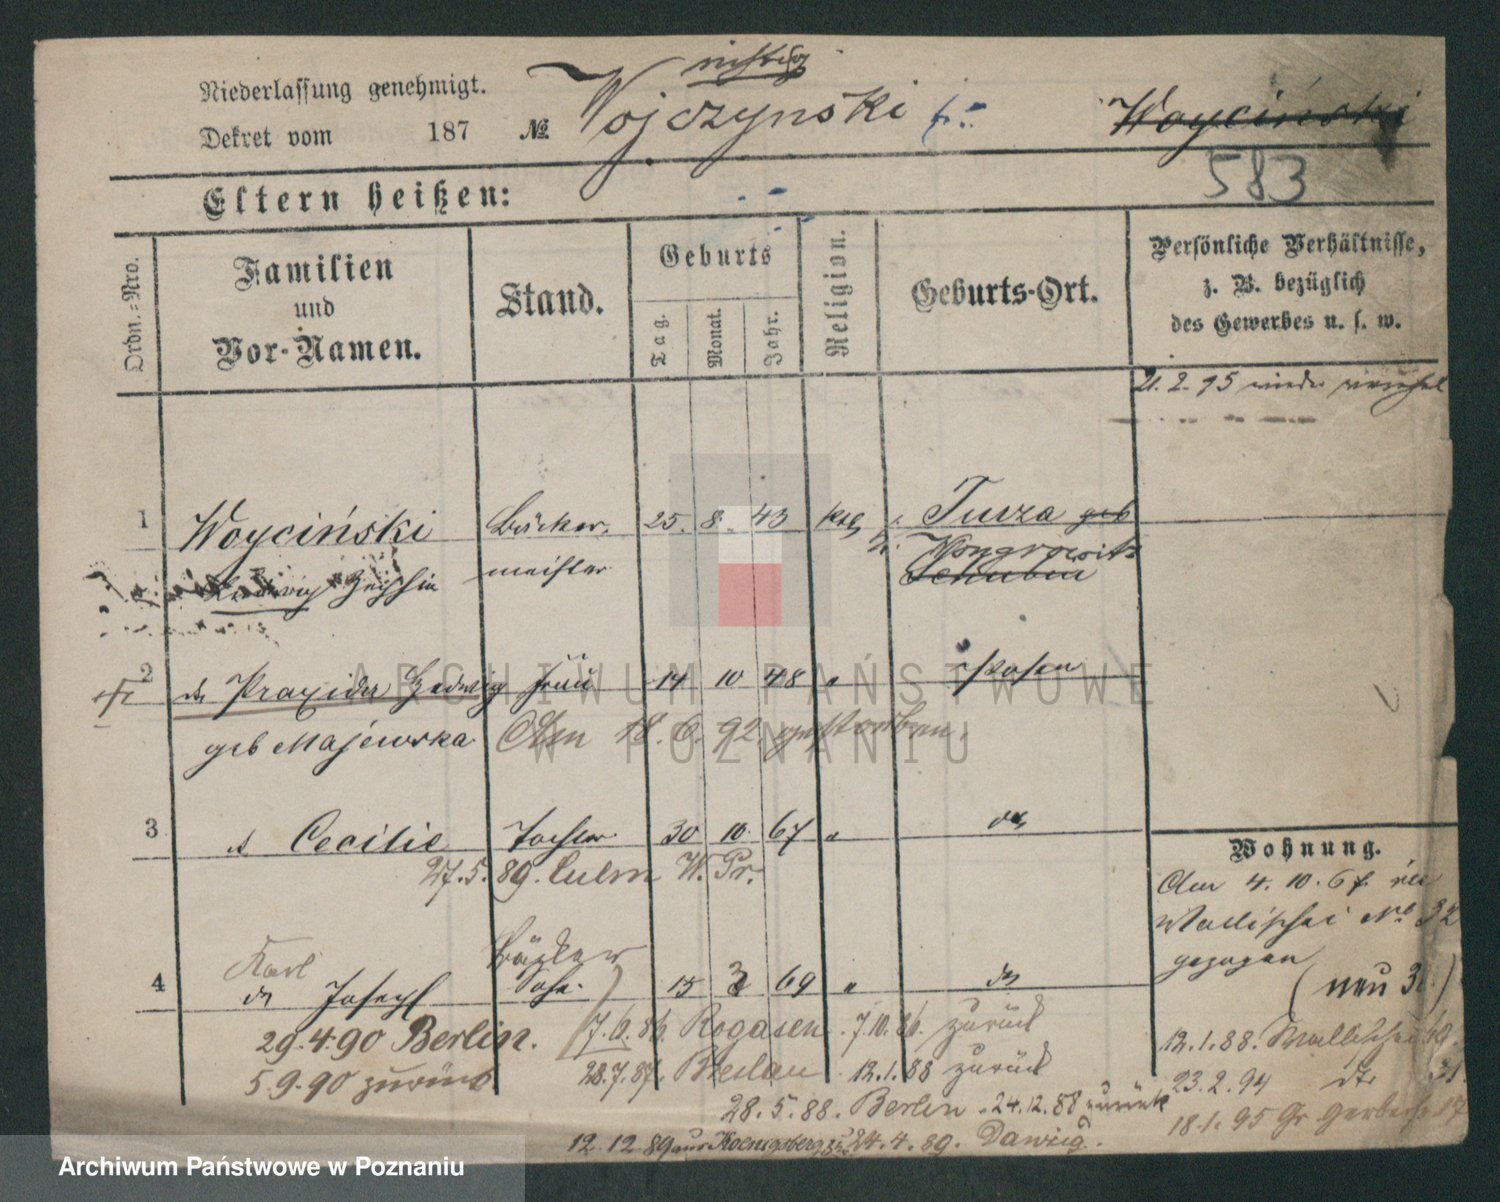 Niederlassung genehmigt.
Dekret vom 187 №
Wojczynski
Woyciński
583
Eltern heißen:
Ordn.-Nro.
Familien
und
Vor-Namen.
Stand.
Geburts
Tag.
Monat.
Jahr.
Religion.
Geburts-Ort.
Persönliche Verhältnisse,
z. B. bezüglich
des Gewerbes u. s. w.
21. 2. 95
1 Woyciński Bäcker- 25. 8. 43 kth Turza geb
meister Wongrowitz
Schubin
2 Praxida Hedwig Frau 14 10 48 " Posen
geb Majewska Am 18. 6. 92 gestorben.
3 Cecilie Tochter 30 10. 67 "
27. 5. 89. Culm W. Pr.
Wohnung.
Am 4. 10. 6
Wallischei No 32
gezogen
(neu 3 )
Karl Bäcker
4 Joseph Sohn. 15 3 69 "
29. 4. 90 Berlin. 7. 6. 86. Rogasen. 7. 10. 86. zurück
5. 9. 90 zurück 28. 7. 87. Breslau 12. 1. 88 zurück
28. 5. 88. Berlin. 24. 12. 88 zurück
12. 12. 89 aus Koenigsberg 24. 4. 89. Danzig.
12. 1. 88. Wallischei
23. 2. 94
18. 1. 95 Gr. Gerberstr 17
ARCHIWUM PAŃSTWOWE
W POZNANIU
Archiwum Państwowe w Poznaniu